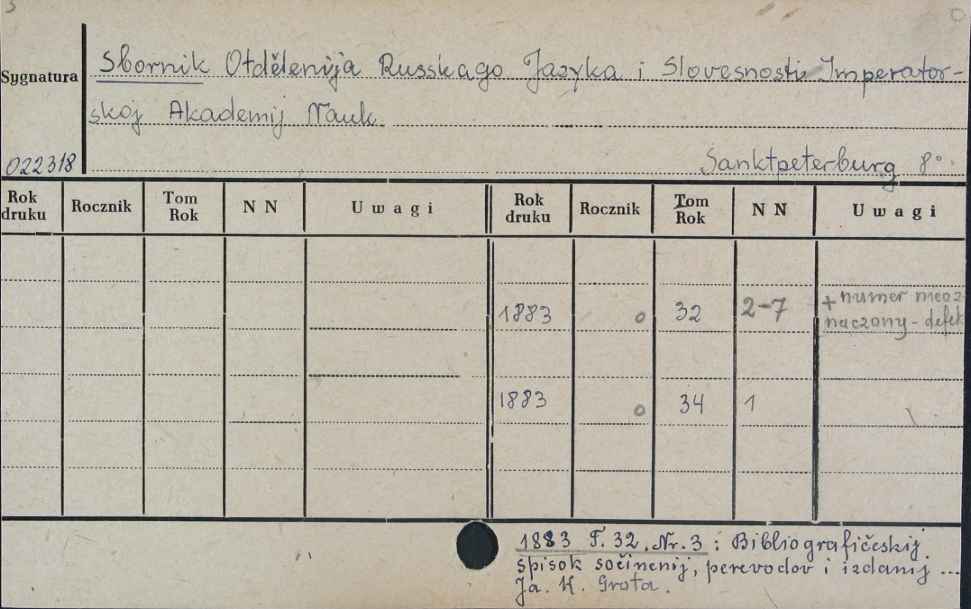 Sygnatura
Sbornik Otdělenija Russkago Jazyka i Slovesnosti Imperator-
skoj Akademij Nauk
022318
Sanktpeterburg 8°
Rok druku Rocznik Tom Rok N N Uwagi Rok druku Rocznik Tom Rok N N Uwagi
1883 o 32 2-7 + numer nieoz
naczony - defek
1883 o 34 1
1883 T. 32, Nr. 3 : Bibliografičeskij
spisok sočinenij, perevodov i izdanij ...
Ja. K. Grota.